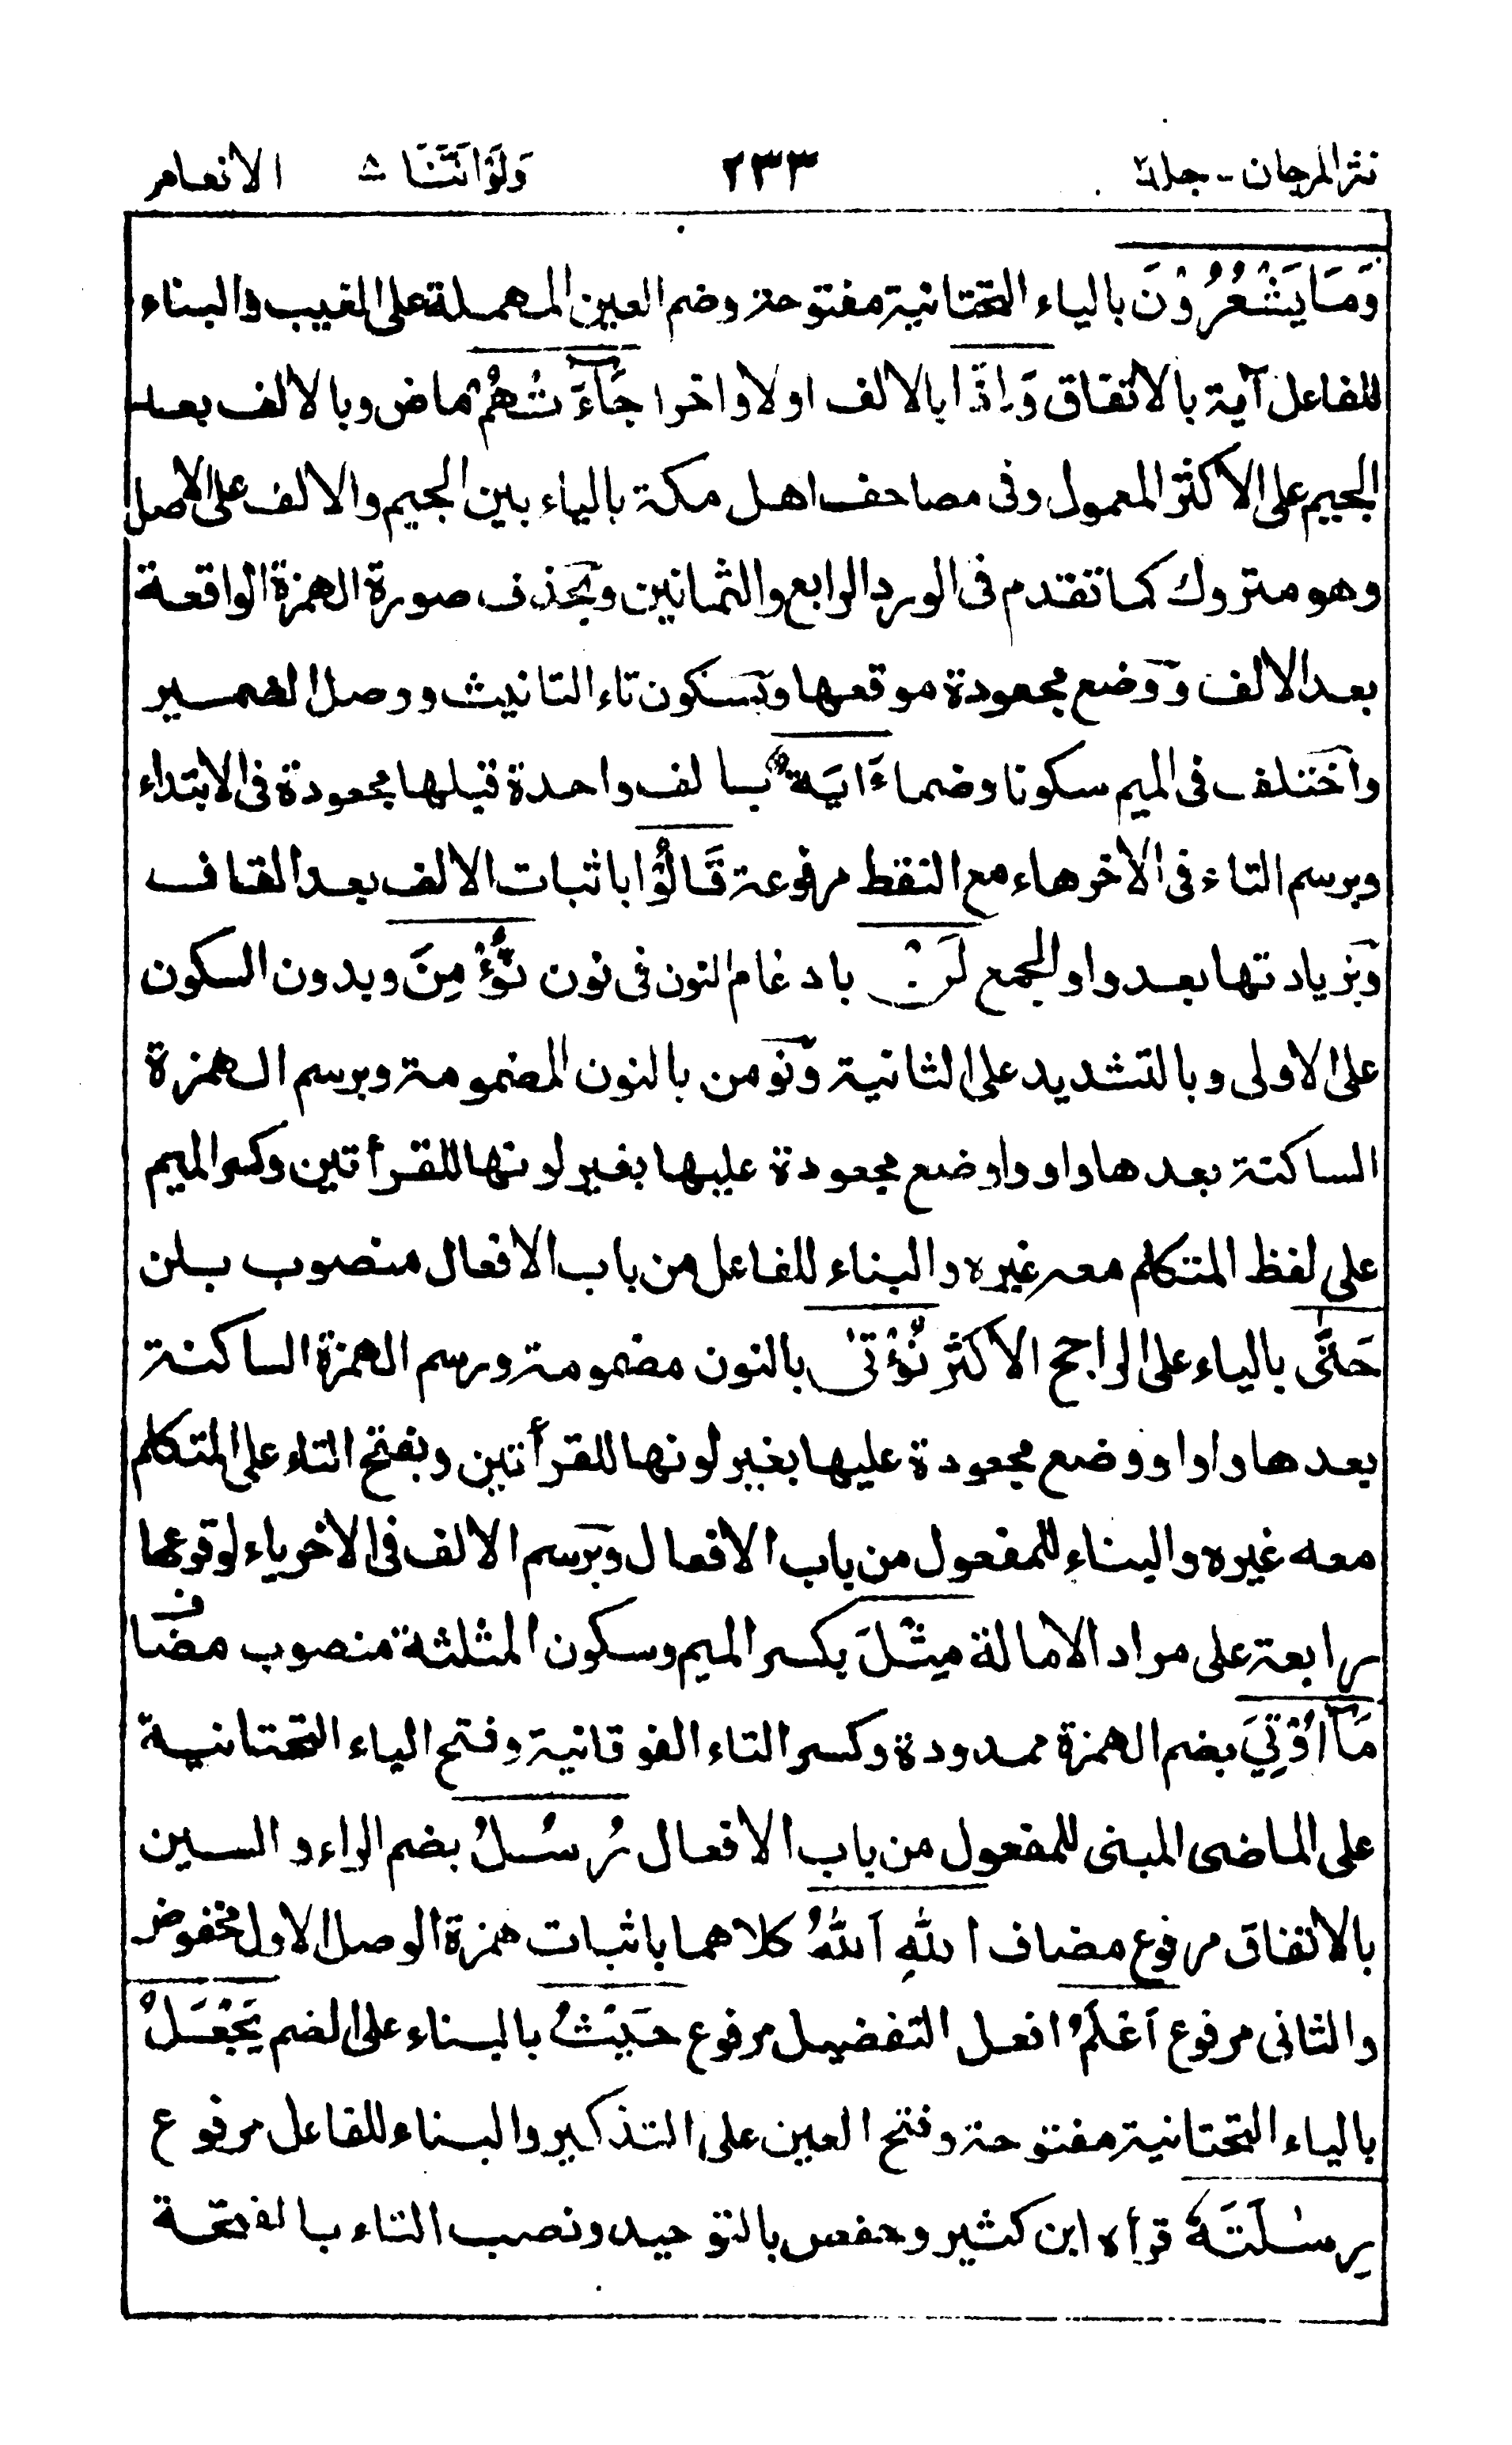 نثر المرجان - جلد٢ ٢٣٣ وَلَوْ اَنَّنَا ٨ الانعام
وَمَا يَشْعُرُوْنَ بالياء التحتانية مفتوحة وضم العين المهملة على الغيب والبناء
للفاعل آية بالاتفاق وَاِذَا بالالف اولا واخرا جَآءَتْهُمْ ماض وبالالف بعد
الجيم على الاكثر المعمول وفى مصاحف اهل مكة بالياء بين الجيم والالف على الاصل
وهو متروك كما تقدم فى الورد الرابع والثمانين وبحذف صورة الهمزة الواقعة
بعد الالف ووضع مجعودة موقعها وبسكون تاء التانيث ووصل الضمير
واختلف فى الميم سكونا وضما ءَايَةٌ بالف واحدة قبلها مجعودة فى الابتداء
وبرسم التاء فى الاخر هاء مع النقط مرفوعة قَالُوْا باثبات الالف بعد القاف
وبزيادتها بعد واو الجمع لَنْ بادغام النون فى نون نُّؤْمِنَ وبدون السكون
على الاولى وبالتشديد على الثانية ونومن بالنون المضمومة وبرسم الهمزة
الساكنة بعدها واو واوضع مجعودة عليها بغير لونها للقرأتين وكسر الميم
على لفظ المتكلم معه غيره والبناء للفاعل من باب الافعال منصوب بلن
حَتّٰى بالياء على الراجح الاكثر نُؤْتٰى بالنون مضمومة ورسم الهمزة الساكنة
بعدها واوا ووضع مجعودة عليها بغير لونها للقرأتين وبفتح التاء على المتكلم
معه غيره والبناء للمفعول من باب الافعال وبرسم الالف فى الاخر ياء لوقوعها
رابعة على مراد الامالة مِثْلَ بكسر الميم وسكون المثلثة منصوب مضاف
مَآ اُوْتِيَ بضم الهمزة ممدودة وكسر التاء الفوقانية وفتح الياء التحتانية
على الماضى المبنى للمفعول من باب الافعال رُسُلُ بضم الراء والسين
بالاتفاق مرفوع مضاف اللهِ اَللهُ كلاهما باثبات همزة الوصل الاول مخفوض
والثانى مرفوع اَعْلَمُ افعل التفضيل مرفوع حَيْثُ بالبناء على الضم يَجْعَلُ
بالياء التحتانية مفتوحة وفتح العين على التذكير والبناء للفاعل مرفوع
رِسٰلَتَهٗ قرأه ابن كثير وحفص بالتوحيد ونصب التاء بالفتحة